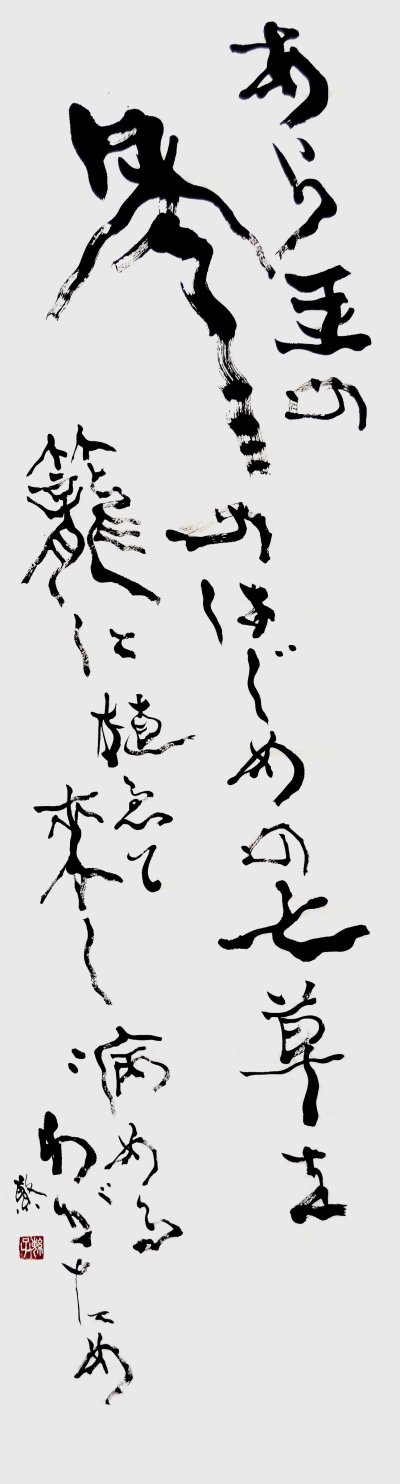 あら玉の
年のはじめの七草を
籠に植ゑて来し
病めるわがため